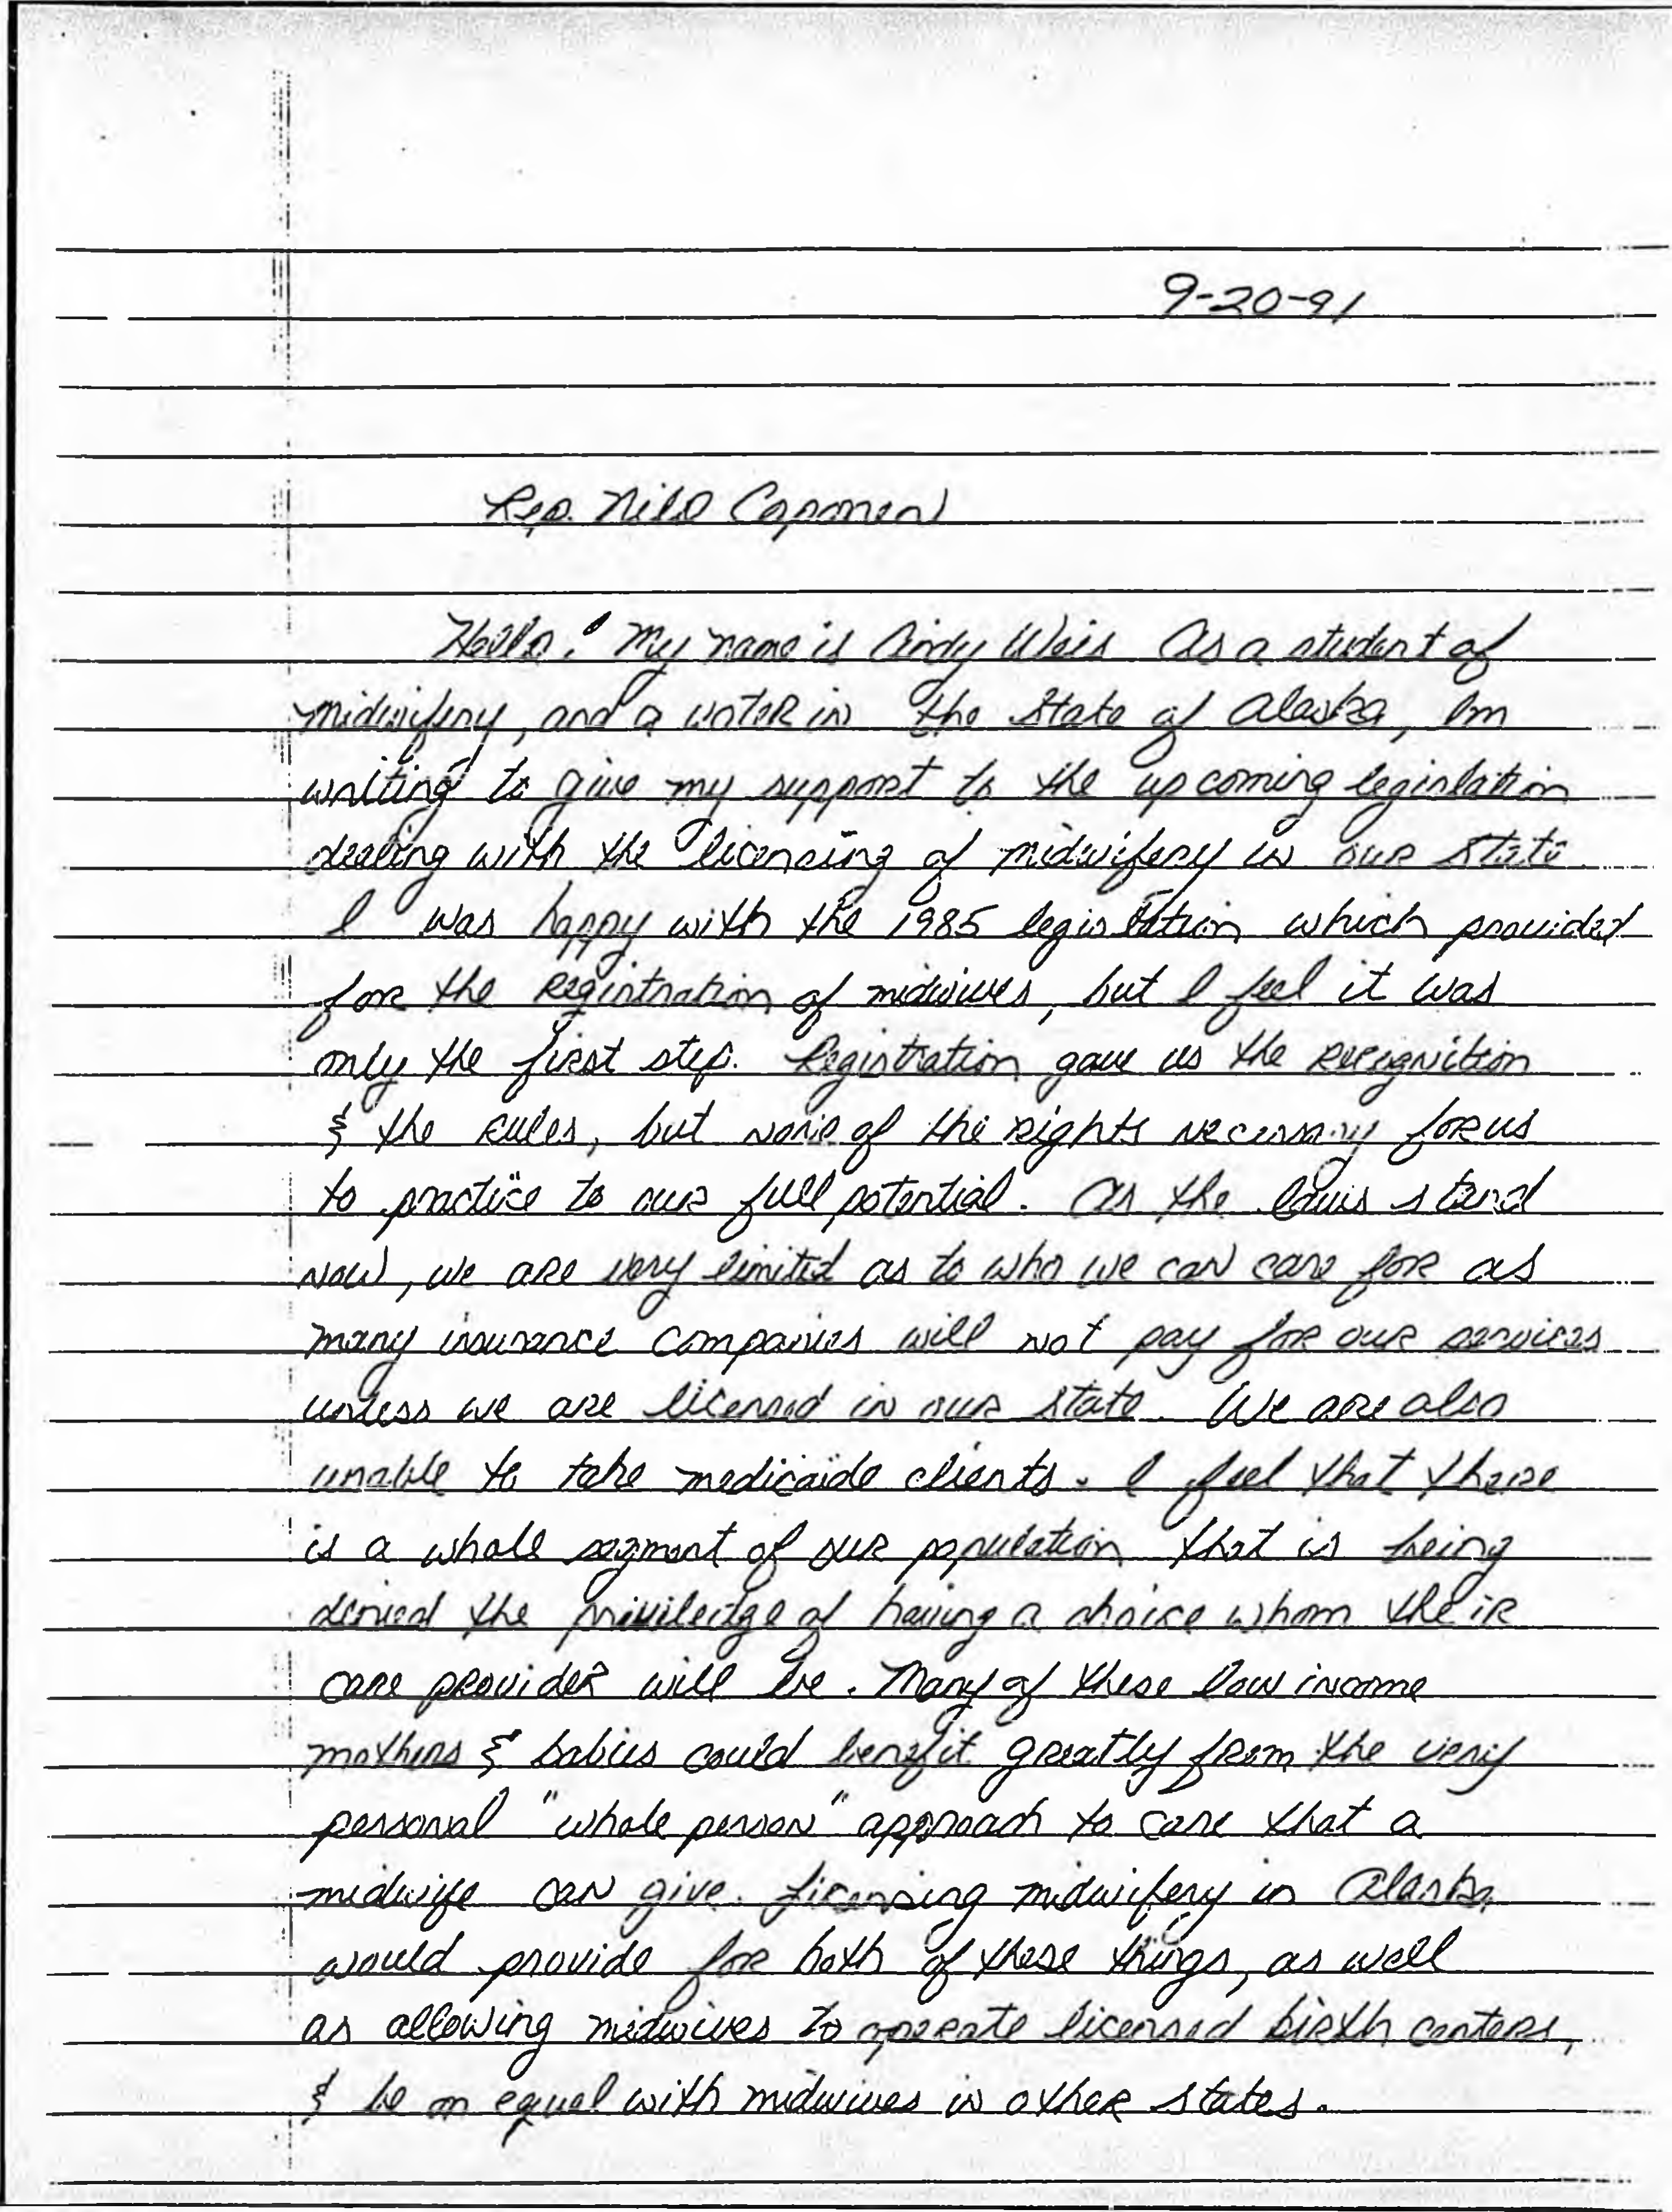 9-20-91
Rep. Nilo Coponen
Hello! My name is Cindy Weis As a student of
midwifery, and a voter in the State of Alaska, Im
writing to give my support to the up coming legislation
dealing with the licensing of midwifery in our state.
I was happy with the 1985 legislation which provided
for the registration of midwives, but I feel it was
only the first step. Registration gave us the recognition
& the rules, but none of the rights necessary for us
to practice to our full potential. As the laws stand
now, we are very limited as to who we can care for as
many insurance companies will not pay for our services
unless we are licensed in our state. We are also
unable to take medicaide clients. I feel that there
is a whole segment of our population that is being
denied the priviledge of having a choice whom their
care provider will be. Many of these low income
mothers & babies could benefit greatly from the very
personal "whole person" approach to care that a
midwife can give. Licensing midwifery in Alaska
would provide for both of these things, as well
as allowing midwives to operate licensed birth centers,
& be on equal with midwives in other states.